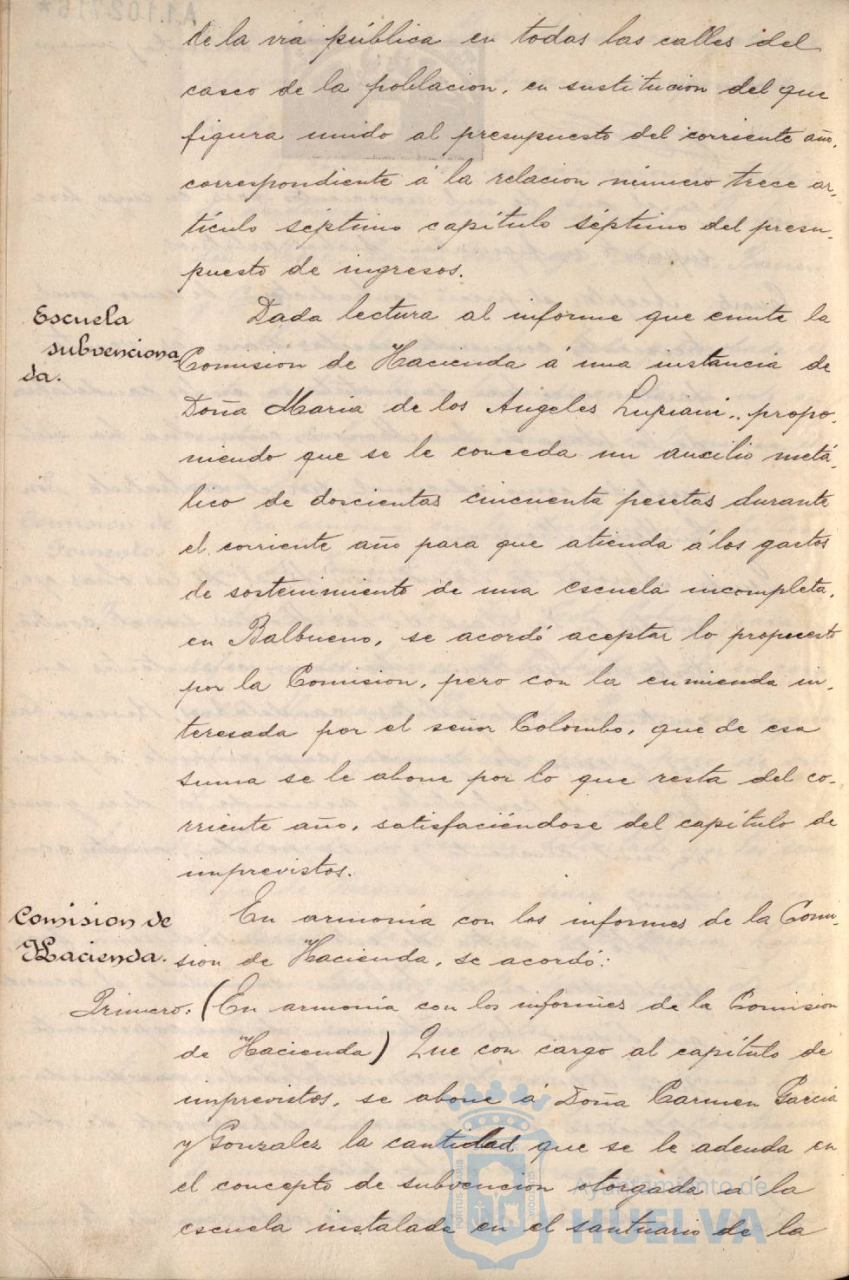 A.1.102.716*
de la via pública en todas las calles del
casco de la poblacion, en sustitucion del que
figura unido al presupuesto del corriente año,
correspondiente á la relacion número trece ar-
tículo séptimo capítulo séptimo del presu-
puesto de ingresos.
Escuela
subvenciona
da.
Dada lectura al informe que emite la
Comision de Hacienda á una instancia de
Doña Maria de los Angeles Lupiani, propo-
niendo que se le conceda un auxilio metá-
lico de doscientas cincuenta pesetas durante
el corriente año para que atienda á los gastos
de sostenimiento de una escuela incompleta,
en Balbueno, se acordó aceptar lo propuesto
por la Comision, pero con la enmienda in-
teresada por el señor Colombo, que de esa
suma se le abone por lo que resta del co-
rriente año, satisfaciéndose del capítulo de
imprevistos.
Comision de
Hacienda.
En armonía con los informes de la Comi-
sion de Hacienda, se acordó:
Primero. (En armonía con los informes de la Comision
de Hacienda) Que con cargo al capítulo de
imprevistos, se abone á Doña Carmen Garcia
y Gonzalez la cantidad que se le adeuda en
el concepto de subvencion otorgada á la
escuela instalada en el santuario de la
Ayuntamiento de
HUELVA